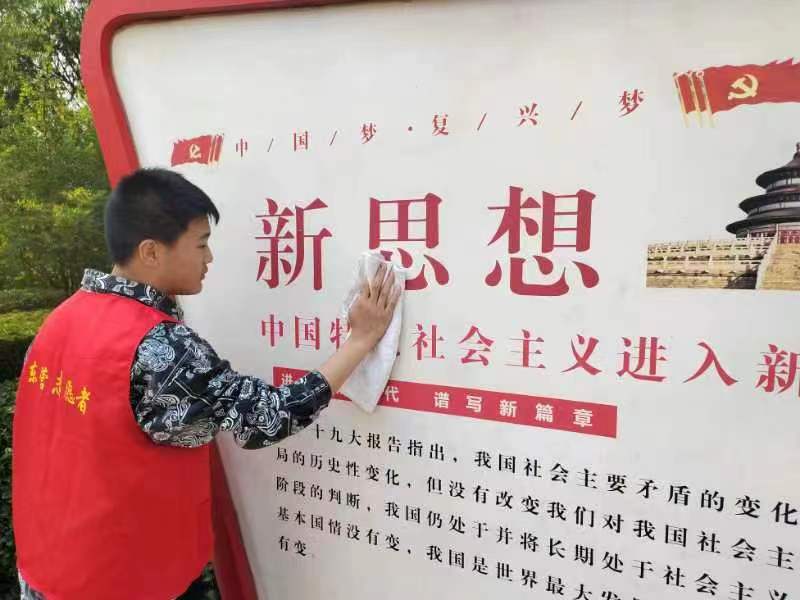 中/国/梦·复/兴/梦
新思想
中国特 社会主义进入新
进 代 谱写新篇章
十九大报告指出,我国社会主要矛盾的变化
局的历史性变化,但没有改变我们对我国社会主
阶段的判断,我国仍处于并将长期处于社会主义
基本国情没有变,我国是世界最大发
有变
东营 志愿者